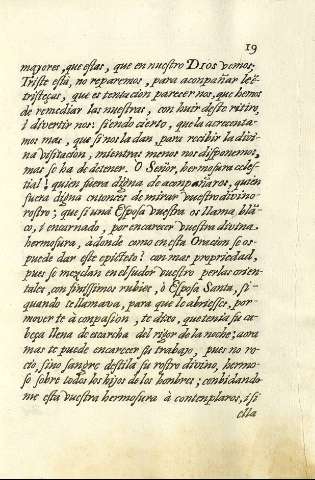 19
mayores, que estas, que en nuestro DIOS vemos.
Triste està, no reparemos, para acompañar le è
tristeças, que es tentacion parecer nos, que hemos
de remediar las nuestras, con huir deste ritiro,
i divertir nos: siendo cierto, que la acrecenta-
mos mas, que si nos la dan, para recibir la divi-
na visitacion, mientras menos nos disponemos,
mas se ha de detener. O Señor, hermosura celes-
tial! quièn fuera digna de acompañaros, quièn
fuera digna entonces de mirar vuestro divino
rostro; que si una Esposa vuestra os llama blã-
co, i encarnado, por encarecer vuestra divina
hermosura, adonde como en esta Oracion se os-
puede dar este epicteto? con mas propriedad,
pues se mezclan en el sudor vuestro perlas orien-
tales, con finissimos rubies, ò Esposa Santa, si
quando te llamava, para que le abriesses, por
moverte à conpasion, te dixo, que tenia su ca-
beça llena de escarcha del rigor de la noche; aora
mas te puede encarecer su trabajo, pues no ro-
cio, sino sangre destila su rostro divino, hermo-
so sobre todos los hijos de los honbres; conbidando-
me està vuestra hermosura à contemplaros, i si
ella